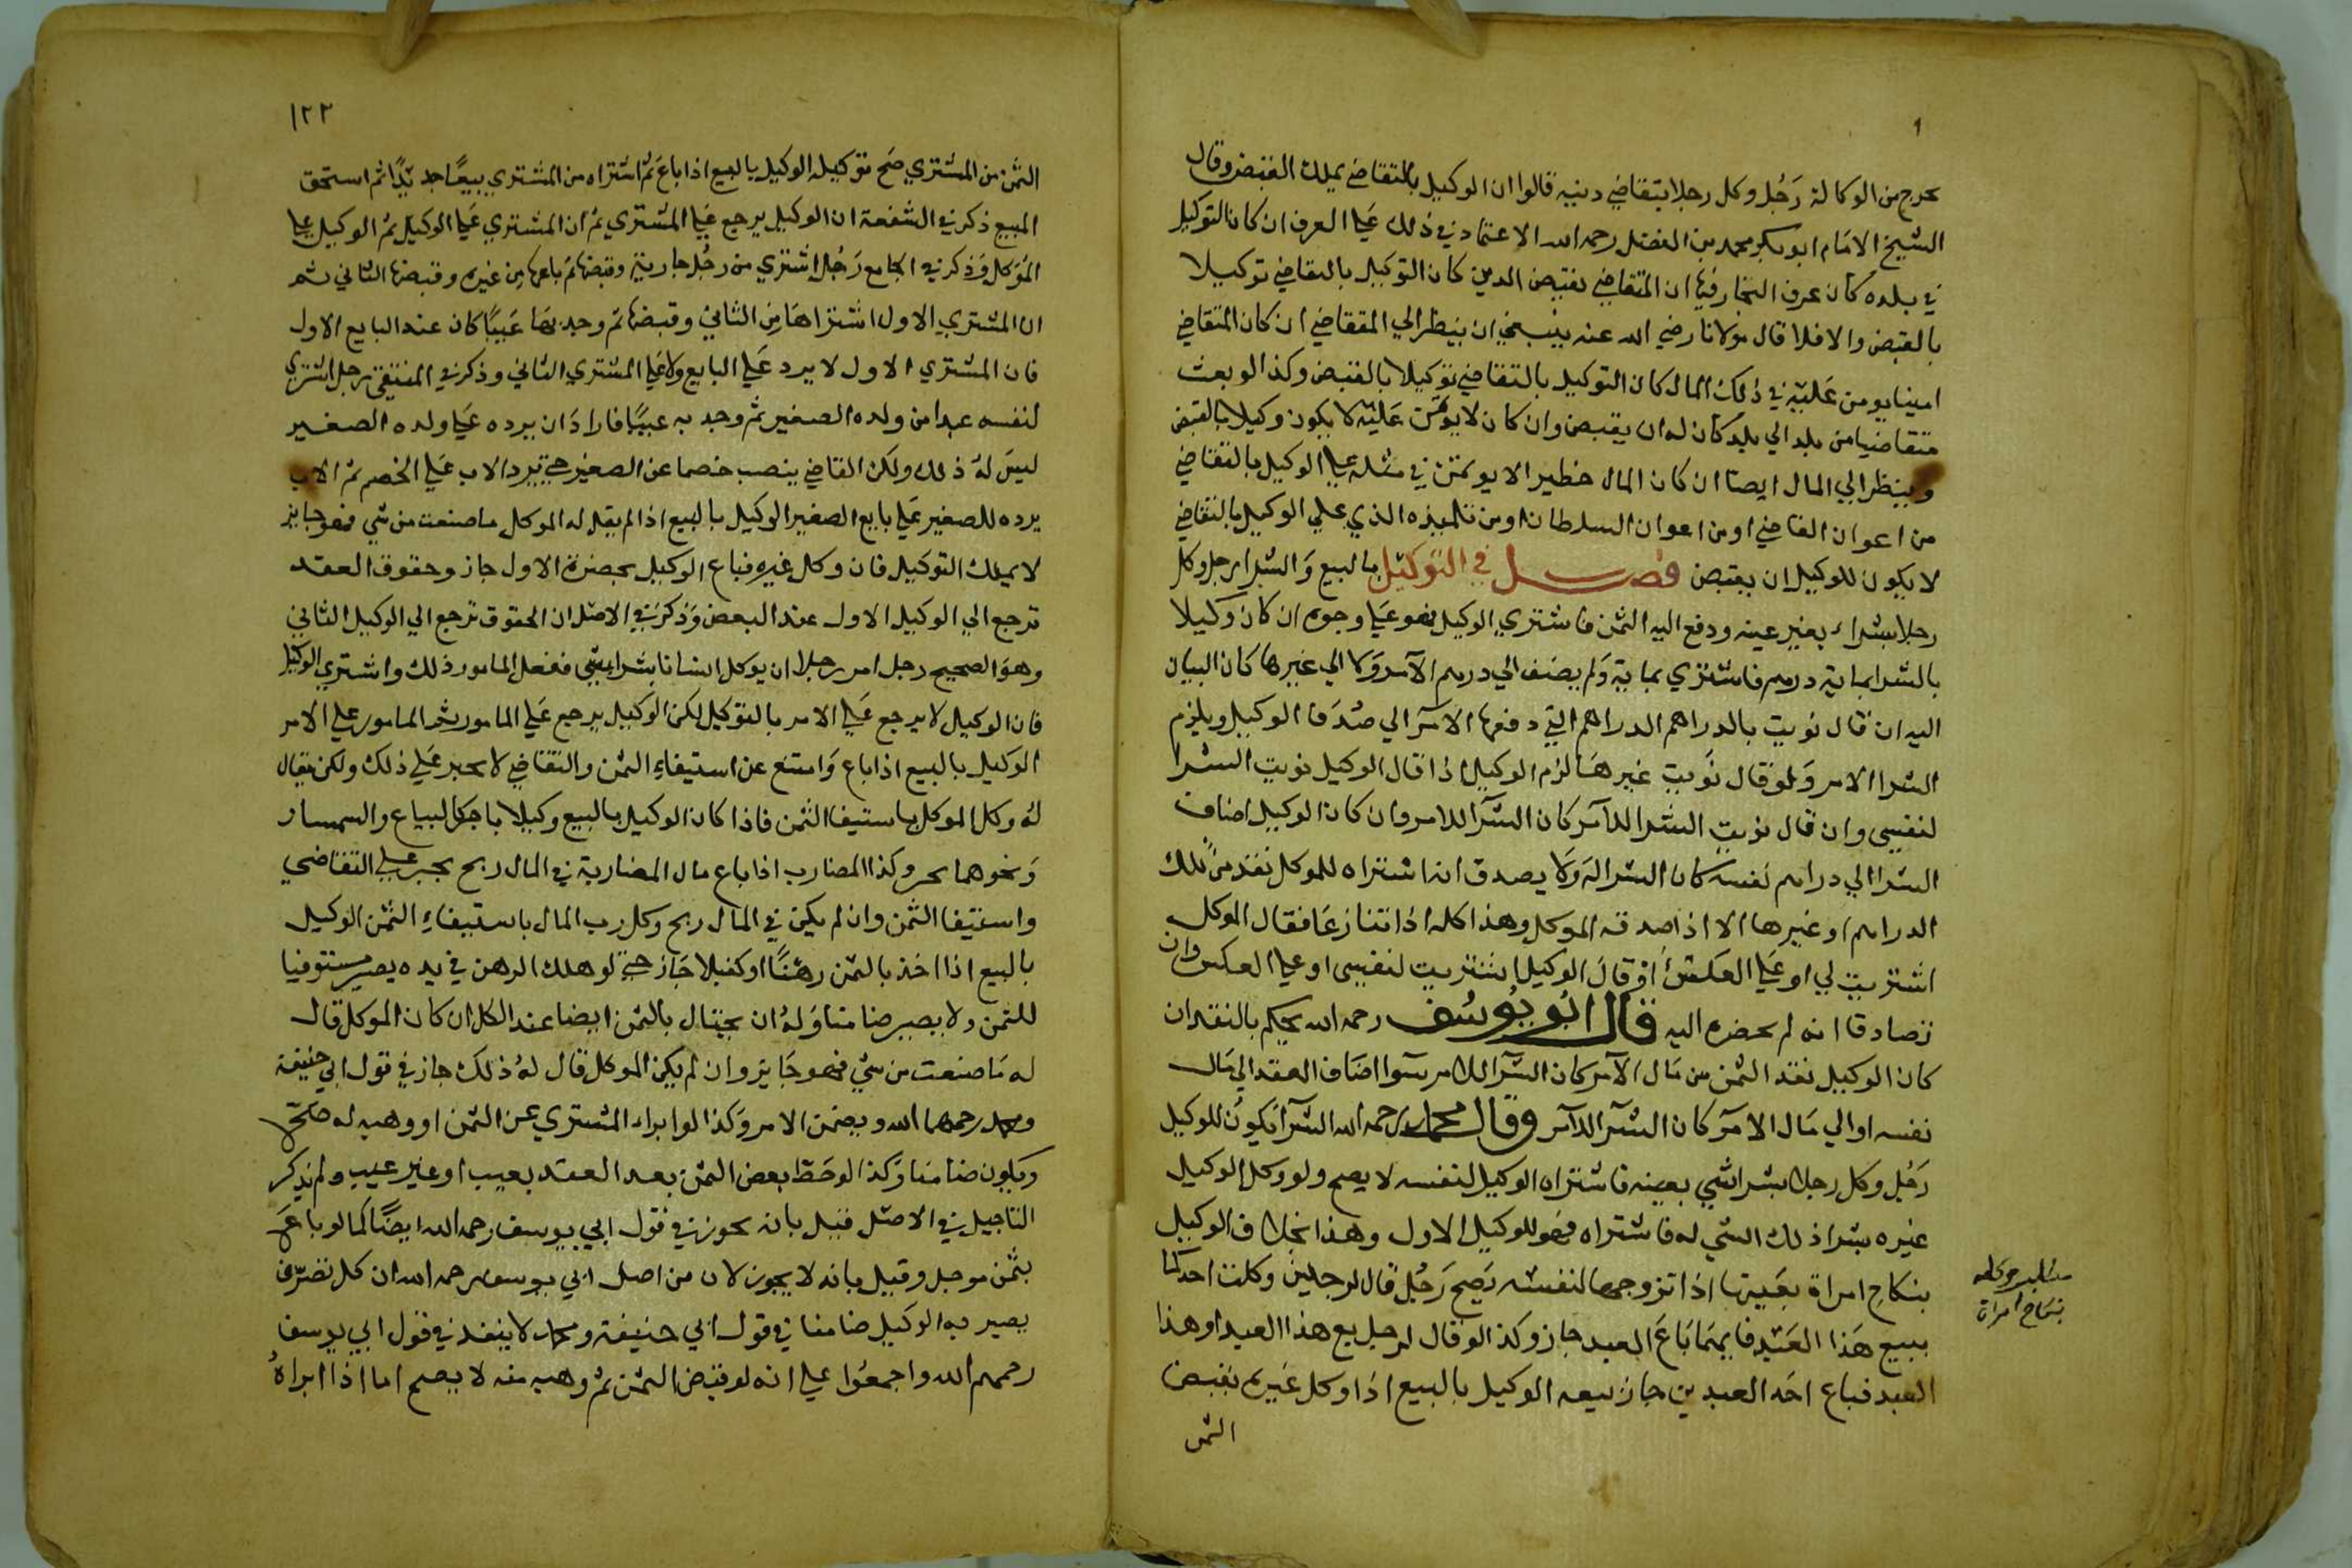 يخرج من الوكالة رَجُل وكل رجلا بتقاضي دينه قالوا ان الوكيل بالتقاضي يملك القبض وقال
الشيخ الامام ابو بكر محمد بن الفضل رحمه الله الاعتماد في ذلك عَلي العرف ان كان التوكيل
في بلده كان عرف التجار فيها ان المتقاضي يقبض الدين كان التوكيل بالتقاضي توكيلا
بالقبض والا فلا قال مولانا رضي الله عنه ينبغي ان ينظر الي المتقاضي ان كان المتقاضي
امينا يومن عَليه في ذلك المال كان التوكيل بالتقاضي توكيلا بالقبض وكذا لو بعث
متقاضيا من بلد الي بلد كان له ان يقبض وان كان لا يومن عَليه لا يكون وكيلا بالقبض
وينظر الي المال ايضا ان كان المال خطيرا لا يوتمن في مثله علي الوكيل بالتقاضي
من اعوان القاضي او من اعوان السلطان او من تلميذه الذي علي الوكيل بالتقاضي
لا يكون للوكيل ان يقبض فصل في التوكيل بالبيع وَالشراء رجل وكل
رجلا بشراء بغير عينه ودفع اليه الثمن فاشتري الوكيل فهو عَلي وجوه ان كان وَكيلا
بالشرا بماية درهم فاشتري بماية وَلم يضف الي درهم الآمر وَلا الي غيرها كان البيان
اليه ان قال نويت بالدراهم الدراهم التي دفعها الآمر الي صُدّقا الوكيل ويلزم
الشرا الامر وَلو قال نَويت غيرهَا لزم الوكيل اذا قال الوكيل نويت الشرا
لنفسي وان قال نويت الشرا للآمر كان الشرآ للامر وان كان الوكيل اضاف
الشرا الي دراهم نفسه كان الشرا لهَ وَلا يصدق انه اشتراه للموكل نقد من تلك
الدراهم او غيرها الا اذا صدقه الموكل وهذا كله اذا تنازعَا فقال الموكل
اشتريت لي او عَلي العكس أوْ قال الوكيل اشتريت لنفسي او علي العكس وان
تصادقا انه لم يحضره النيه قال ابُو يُوسُف رحمه الله يحكم بالنقد ان
كان الوكيل نقد الثمن من مَال الآمر كان الشرآ للامر سَوا اضَاف العقد الي مَال
نفسه او الي مَال الامرَ كان الشرآ للآمر وقال محمد رحمه الله الشرآ يَكونُ للوكيل
رَجُل وكل رجلا بشرا شي بعينه فاشتراه الوكيل لنفسه لا يصح ولو وكل الوكيل
غيره بشرا ذلك الشي له فاشتراه فهو للوكيل الاول وهذا بخلاف الوكيل
بنكاح امراة بعَينها اذا تزوجها لنفسه يَصح رَجُل قال لرجلين وكلت احدكما
ببيع هَذا العَبد فايهما بَاعَ العبد جاز وكذا لو قال لرجل بع هذا العبد او هذا
العبد فباع احَد العبدين جاز بيعه الوكيل بالبيع اذا وكل غيره بقبض
الثمن
بنكاح امراة
١٢٢
الثمن من المشتري صَح توكيله الوكيل بالبيع اذا باعَ ثم اشتراه من المشتري بيعًا جديدًا ثم استحق
المبيع ذكر في الشفعة ان الوكيل يرجع عَلي المشتري ثم ان المشتري عَلي الوكيل ثم الوكيل علي
المؤكل وَذكر في الجامع رَجُل اشتري من رجُل جارية وقبضها ثم باعها مِن غيره وقبضها الثاني ثم
ان المشتري الاول اشتراهَا مِن الثاني وقبضها ثم وجد بهَا عَيبًا كان عند البايع الاول
فان المشتري الاول لا يرد عَلي البايع ولا عَلي المشتري الثاني وذكر في المنتقي رجل اشتري
لنفسه عبدا من ولده الصغير ثم وجد به عيبًا فارادَ ان يرده عَلي ولده الصغير
ليسَ لهُ ذلك ولكن القاضي ينصب خصما عن الصغير حتي يرد الاب عَلي الخصم ثم الاب
يرده للصغير عَلي بايع الصغير الوكيل بالبيع اذا لم يقل له الموكل ما صنعت من شي فهو جايز
لا يملك التوكيل فان وكل غيره فباع الوكيل بحضرة الاول جاز وحقوق العقد
ترجع الي الوكيل الاول عند البعض وَذكر في الاصْل ان الحقوق ترجع الي الوكيل الثاني
وهوَ الصحيح رجل امر رجلا ان يوكل انسانا بشراء شي ففعل المامور ذلك واشتري الوكيل
فان الوكيل لا يرجع عَلي الامر بالتوكيل لكن الوكيل يرجع عَلي المامور ثم المامور علي الامر
الوكيل بالبيع اذا باع وَامتنع عن استيفاءِ الثمن والتقاضي لا يجبر عَلي ذلك ولكن يقال
لهُ وكل الموكل باستيفا الثمن فاذا كان الوكيل بالبيع وكيلا باجر كالبياع والسمسار
وَنحوهما يجبر وكذا المضارب اذا باع مال المضاربة في المال ربح يجبر علي التقاضي
واستيفا الثمن وان لم يكن في المال ربح وكل رب المال باستيفاءِ الثمن الوكيل
بالبيع اذا اخذ بالثمن رهْنًا او كفيلا جَاز حتي لو هلك الرهن في يده يصير مستوفيا
للثمن ولا يصير ضامنا وَلهُ ان يحتال بالثمن ايضا عند الكل ان كان الموكل قال
له مَا صنعت من شي فهو جَايز وان لم يكن الموكل قال لهُ ذلك جاز في قول ابي حنيفة
ومحمد رحمهما الله ويضمن الامر وَكذا لو ابراء المشتري عن الثمن او وهبه له صَحّ
وَيكون ضامنا وَكذا لو حَط بعض الثمن بعد العقد بعيب او غير عيب ولم يذكر
التاجيل في الاصْل قيل بانه يجوز في قول ابي يوسف رحمه الله ايضًا كما لو باعَ
بثمن موجل وقيل بانه لا يجوز لان من اصل ابي يوسف رحمه الله ان كل تصَرّف
يصير به الوكيل ضامنا في قول ابي حنيفة ومحمد لا ينفذ في قول ابي يوسف
رحمهم الله واجمعُوا علي انه لو قبَض الثمن ثم وهبه منه لا يصح اما اذا ابراهُ